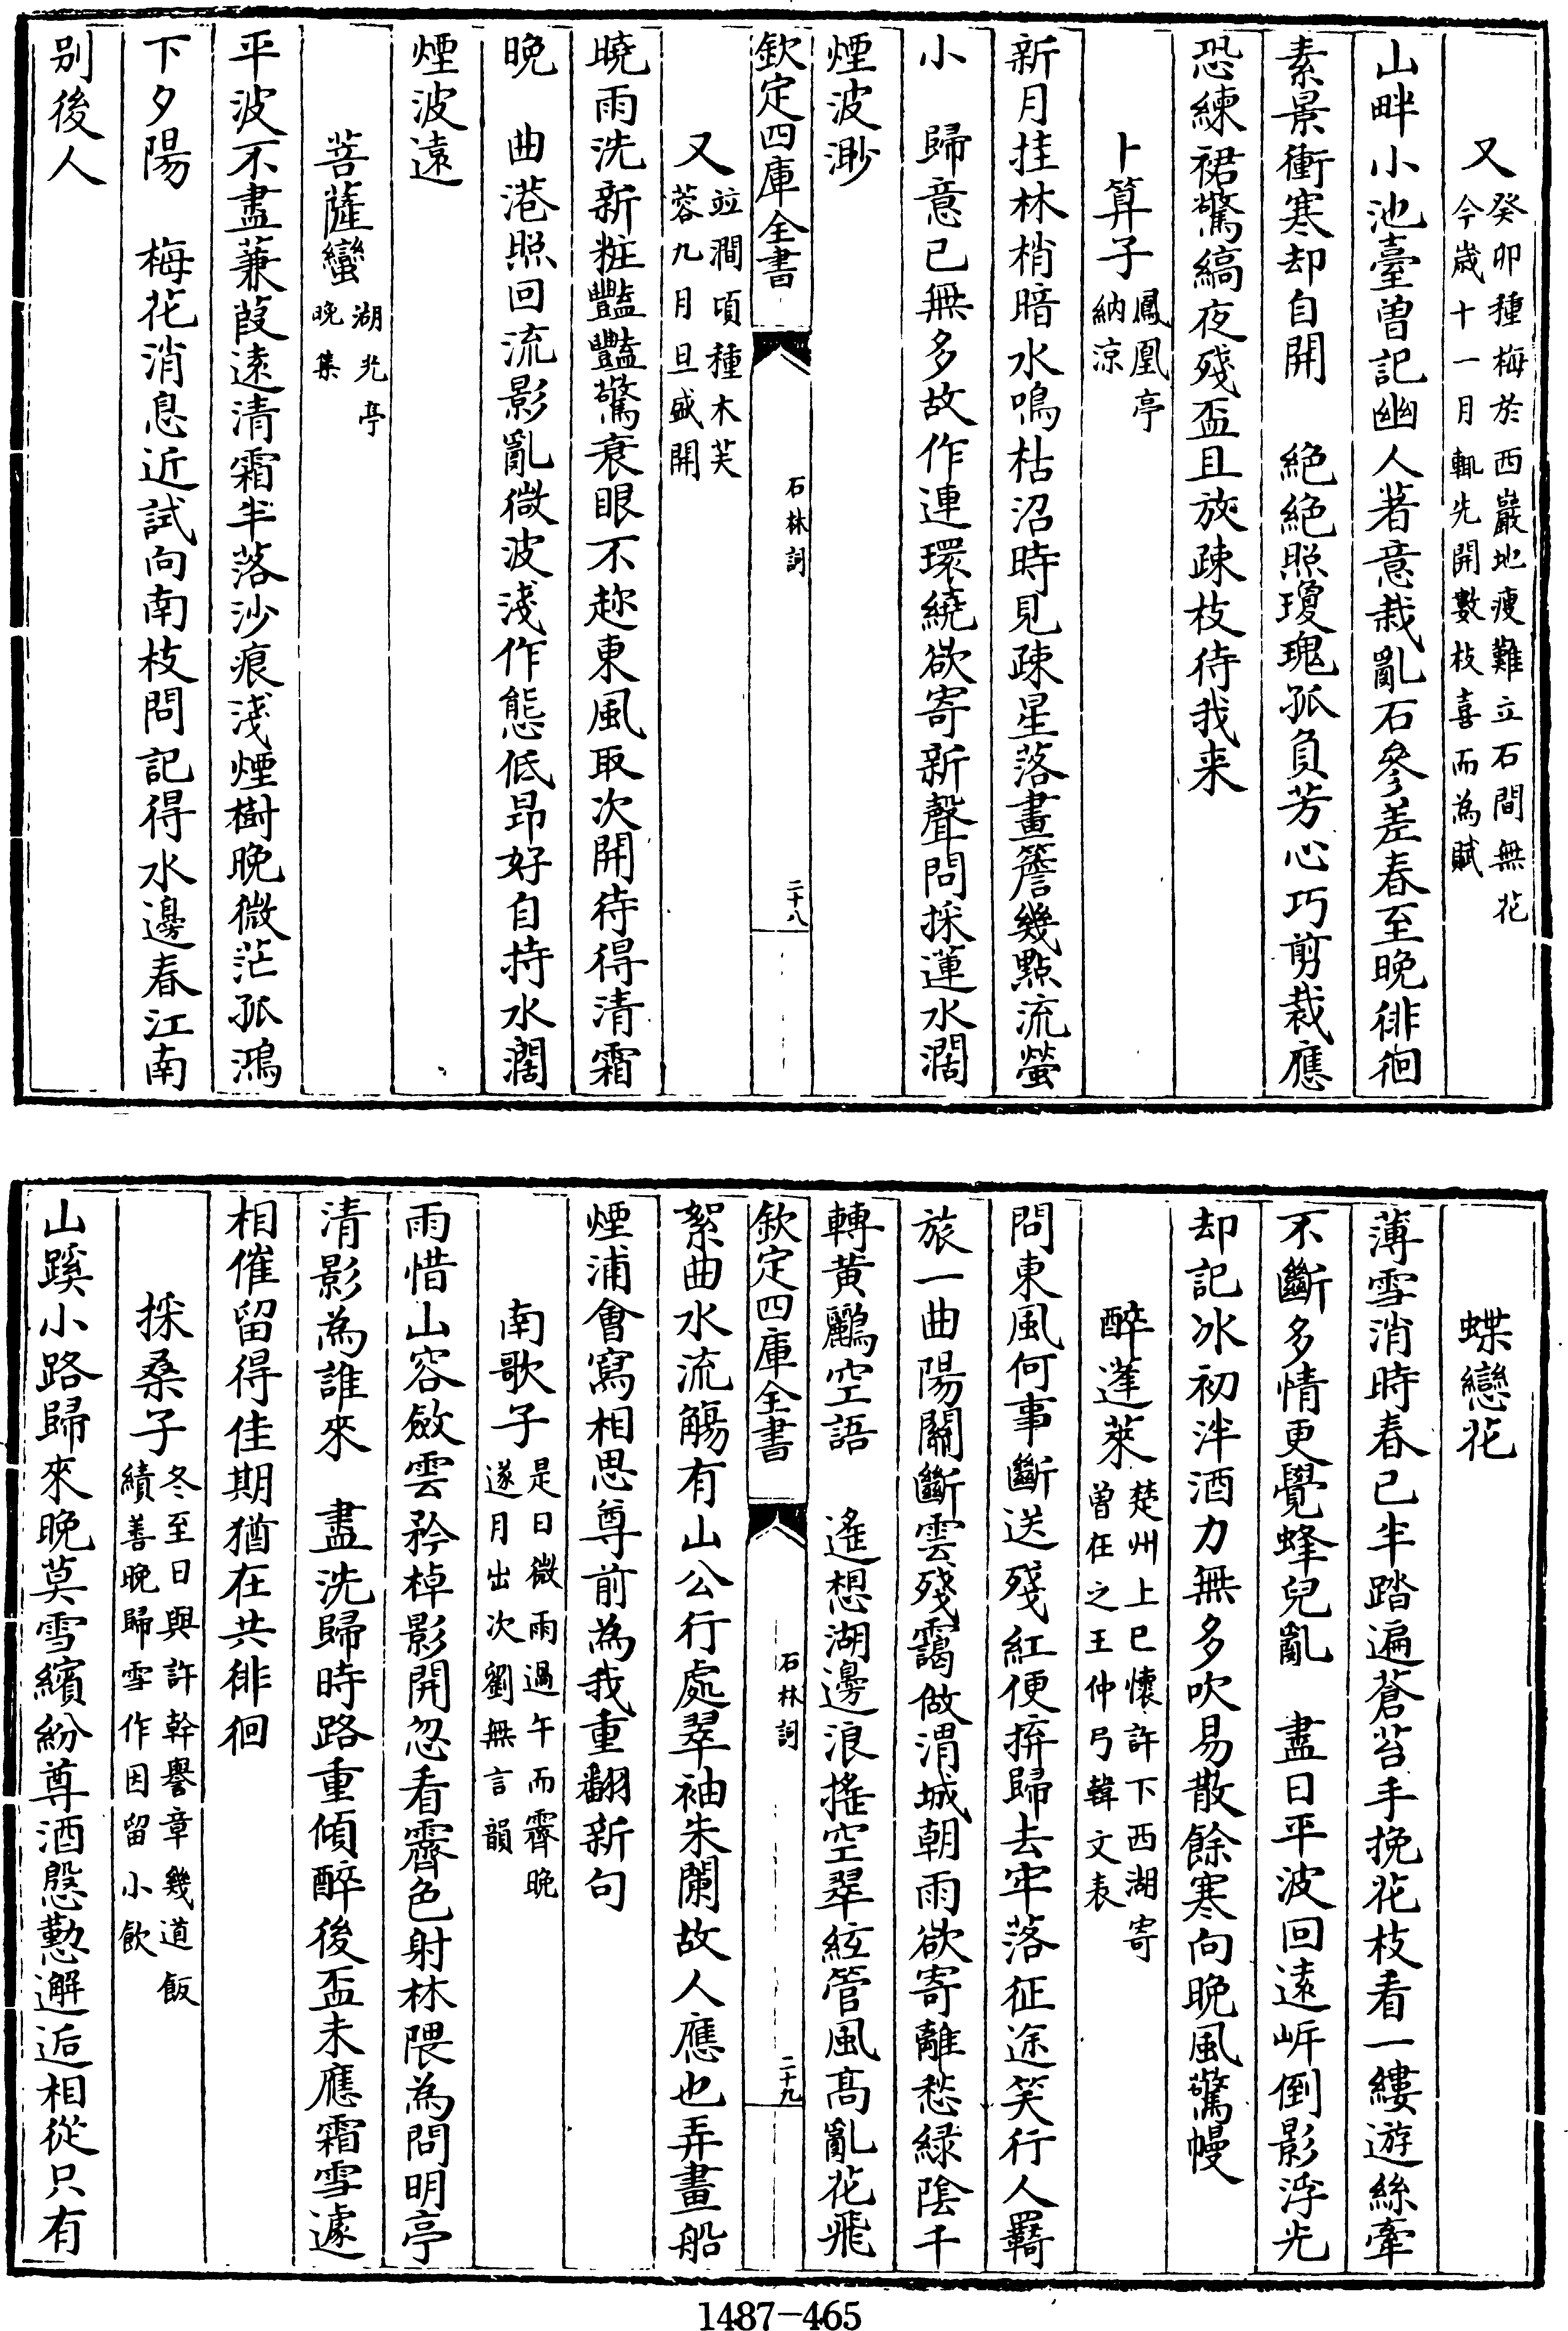 又癸卯種梅於西巖地瘦難立石間無花
今歲十一月輒先開數枝喜而為賦
山畔小池臺曽記幽人著意栽亂石參差春至晚徘徊
素景衝寒却自開　絶絶照瓊瑰孤負芳心巧剪裁應
恐練裙驚縞夜殘盃且放疎枝待我来
卜算子鳳凰亭
納涼
新月挂林梢暗水鳴枯沼時見疎星落畫簷幾點流螢
小　歸意已無多故作連環繞欲寄新聲問採蓮水濶
煙波渺
欽定四庫全書
石林詞
二十八
又竝澗頃種木芙
蓉九月旦盛開
曉雨洗新粧豔豔驚衰眼不趂東風取次開待得清霜
晚　曲港照回流影亂微波淺作態低昂好自持水濶
煙波遠
菩薩蠻湖光亭
晚集
平波不盡蒹葭遠清霜半落沙痕淺煙樹晚微茫孤鴻
下夕陽　梅花消息近試向南枝問記得水邊春江南
别後人
蝶戀花
薄雪消時春已半踏遍蒼苔手挽花枝看一縷遊絲牽
不斷多情更覺蜂兒亂　盡日平波回遠岸倒影浮光
却記冰初泮酒力無多吹易散餘寒向晚風驚幔
醉蓬萊楚州上巳懷許下西湖寄
曽在之王仲弓韓文表
問東風何事斷送殘紅便拚歸去牢落征途笑行人羇
旅一曲陽關斷雲殘靄做渭城朝雨欲寄離愁緑陰千
轉黄鸝空語　遙想湖邊浪搖空翠絃管風髙亂花飛
欽定四庫全書
石林詞
二十九
絮曲水流觴有山公行處翠袖朱闌故人應也弄畫船
煙浦會寫相思尊前為我重翻新句
南歌子是日微雨過午而霽晚
遂月出次劉無言韻
雨惜山容斂雲矜棹影開忽看霽色射林隈為問明亭
清影為誰來　盡洗歸時路重傾醉後盃未應霜雪遽
相催留得佳期猶在共徘徊
採桑子冬至日與許幹譽章幾道飯
績善晚歸雪作因留小飲
山蹊小路歸來晚莫雪繽紛尊酒慇懃邂逅相從只有
1487-465